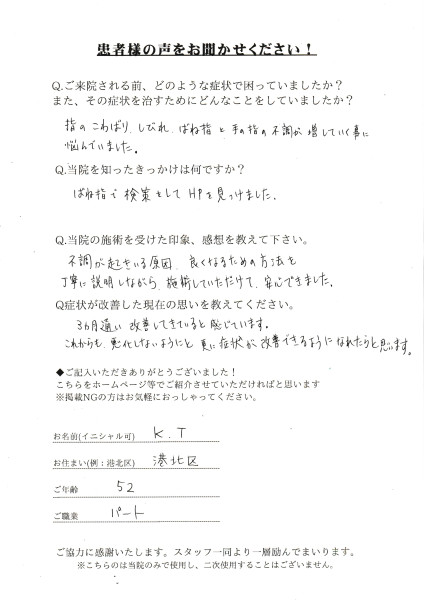 患者様の声をお聞かせください！
Q.ご来院される前、どのような症状で困っていましたか？
また、その症状を治すためにどんなことをしていましたか？
指のこわばり、しびれ、ばね指と手の指の不調が増していく事に
悩んでいました。
Q.当院を知ったきっかけは何ですか？
ばね指で検索としてHPを見つけました。
Q.当院の施術を受けた印象、感想を教えて下さい。
不調が起きている原因、良くなるための方法を
丁寧に説明しながら、施術していただけて、安心できました。
Q症状が改善した現在の思いを教えてください。
3ヵ月通い改善してきていると感じています。
これからも、悪化しないようにと更に症状が改善できるようになれたらと思います。
◆ご記入いただきありがとうございました！
こちらをホームページ等でご紹介させていただければと思います
※掲載NGの方はお気軽におっしゃってください。
お名前(イニシャル可) K.T
お住まい(例：港北区) 港北区
ご年齢 52
ご職業 パート
ご協力に感謝いたします。スタッフ一同より一層励んでまいります。
※こちらのは当院のみで使用し、二次使用することはございません。